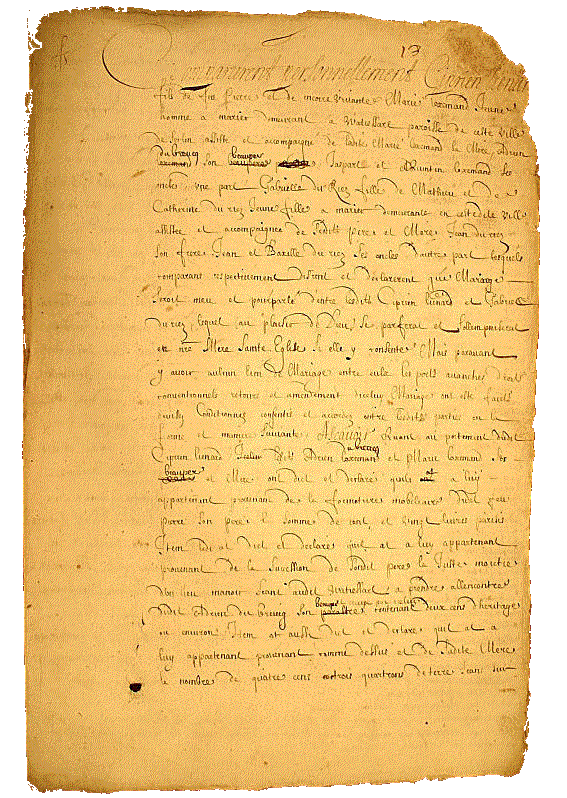 13
Comparurent personnellement Ciprien Lienard
fils de feu pierre et de encore vivante Marie Locmand Jeune
homme a marier demeurant a Watiessart paroisse de ceste Ville
assiste et accompaigne de Marie Locmand sa Mere Adrien
du broeucq beauper
son Jaspart et Quentin Locmand ses
oncles d'une part Gabrielle du Riez fille de Mathieu et de
Catherine du riez Jeune fille a marier demeurante en cestedite Ville
assistee et accompaignee de sesdits pere et Mere Jean du riez
son frere Jean et Bazille du riez ses oncles d'autre part lesquels
comparans respectivement disrent et declarerent que Mariage
seroit meu et pourparle d'entre lesdits Ciprien lienard et Gabrielle
du riez lequel au plaisir de Dieu se parferat et sollempniserat
en nre Mere Sainte Eglise si elle y consente Mais paravant
y avoir aulcun lien de Mariage entre eulx les ports avanches droits
conventionnels retours et amendement diceluy Mariage ont este faicts
devises Conditionnes consentis et accordes entre lesdites parties en la
forme et maniere suivante Ascavoir Quant au portement dudit
Ciprien lienard Iceluy lesdits Adrien du broeucq et Marie Locmand ses
beauper et Mere ont dict et declare quil at a luy
appartenant provenant de la formoture mobiliaire dudit feu
pierre son pere la somme de cent et vingt livres parisis
Item ledit at dict et declare quil at a luy appartenant
provenant de la Succession de sondit pere la Juste moictie
d'un lieu manoir seant audit Watiessart a prendre allencontre
dudit Adrien du broeucq son beauper contenant deux cens d'heritage
ou environ Item at aussy dict et declare quil at a
luy appartenant provenant comme dessus et de sadite Mere
le nombre de quatre cens et trois quartrons de terre seans sur